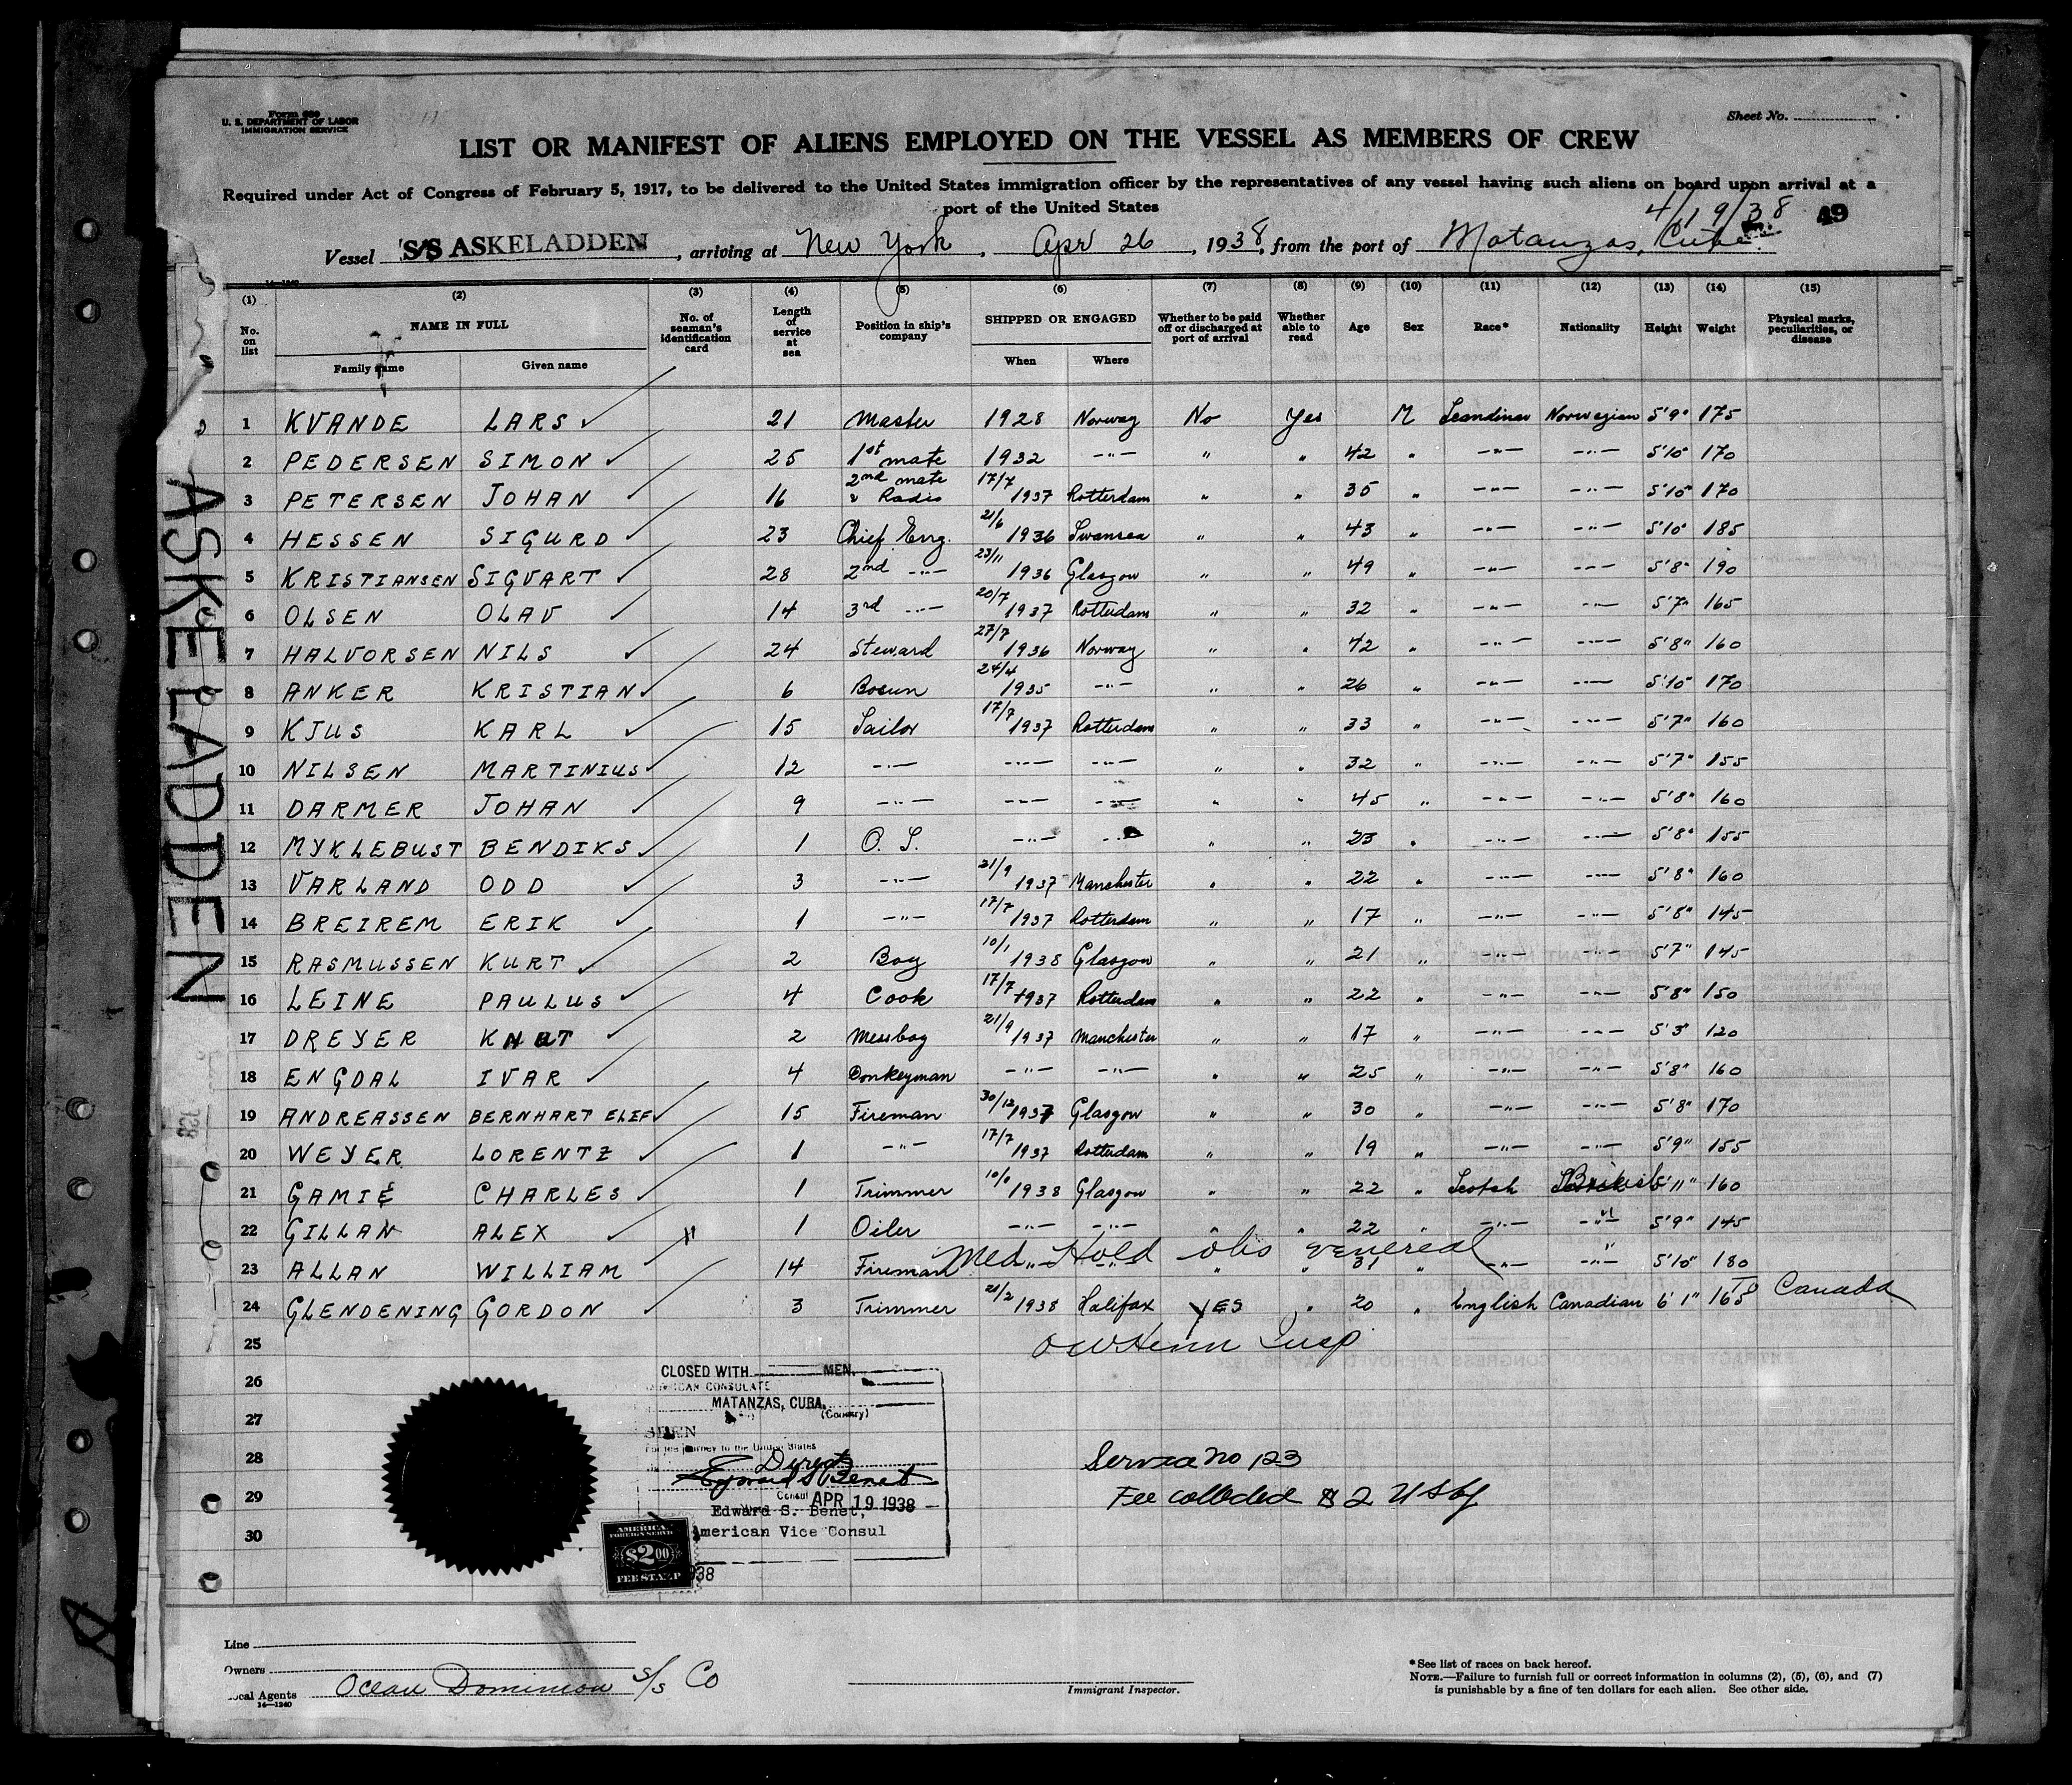 Form 680
U. S. DEPARTMENT OF LABOR
IMMIGRATION SERVICE
Sheet No.
LIST OR MANIFEST OF ALIENS EMPLOYED ON THE VESSEL AS MEMBERS OF CREW
Required under Act of Congress of February 5, 1917, to be delivered to the United States immigration officer by the representatives of any vessel having such aliens on board upon arrival at a
port of the United States
4/19/38 49
Vessel S/S ASKELADDEN, arriving at New York, Apr 26, 1938, from the port of Matanzas, Cuba
14—1240
(1) (2) (3) (4) (5) (6) (7) (8) (9) (10) (11) (12) (13) (14) (15)
No. on list NAME IN FULL Family name Given name No. of seaman's identification card Length of service at sea Position in ship's company SHIPPED OR ENGAGED When Where Whether to be paid off or discharged at port of arrival Whether able to read Age Sex Race* Nationality Height Weight Physical marks, peculiarities, or disease
1 KVANDE LARS ✓ 21 Master 1928 Norway No Yes M Scandinav Norwegian 5'9" 175
2 PEDERSEN SIMON ✓ 25 1st mate 1932 -"- " " 42 " -"- -"- 5'10" 170
3 PETERSEN JOHAN ✓ 16 2nd mate & Radio 17/7 1937 Rotterdam " " 35 " -"- -"- 5'10" 170
4 HESSEN SIGURD ✓ 23 Chief Eng. 21/6 1936 Swansea " " 43 " -"- -"- 5'10" 185
5 KRISTIANSEN SIGVART ✓ 28 2nd -"- 23/11 1936 Glasgow " " 49 " -"- -"- 5'8" 190
6 OLSEN OLAV ✓ 14 3rd -"- 20/7 1937 Rotterdam " " 32 " -"- -"- 5'7" 165
7 HALVORSEN NILS ✓ 24 Steward 27/7 1936 Norway " " 42 " -"- -"- 5'8" 160
8 ANKER KRISTIAN ✓ 6 Bosun 24/4 1935 -"- " " 26 " -"- -"- 5'10" 170
9 KJUS KARL ✓ 15 Sailor 17/7 1937 Rotterdam " " 33 " -"- -"- 5'7" 160
10 NILSEN MARTINIUS ✓ 12 -"- -"- -"- " " 32 " -"- -"- 5'7" 155
11 DARMER JOHAN ✓ 9 -"- -"- -"- " " 45 " -"- -"- 5'8" 160
12 MYKLEBUST BENDIKS ✓ 1 O. S. -"- -"- " " 23 " -"- -"- 5'8" 155
13 VARLAND ODD ✓ 3 -"- 21/9 1937 Manchester " " 22 " -"- -"- 5'8" 160
14 BREIREM ERIK ✓ 1 -"- 17/7 1937 Rotterdam " " 17 " -"- -"- 5'8" 145
15 RASMUSSEN KURT ✓ 2 Boy 10/1 1938 Glasgow " " 21 " -"- -"- 5'7" 145
16 LEINE PAULUS ✓ 4 Cook 17/7 1937 Rotterdam " " 22 " -"- -"- 5'8" 150
17 DREYER KNUT ✓ 2 Messboy 21/9 1937 Manchester " " 17 " -"- -"- 5'3" 120
18 ENGDAL IVAR ✓ 4 Donkeyman -"- -"- " " 25 " -"- -"- 5'8" 160
19 ANDREASSEN BERNHART ELIF ✓ 15 Fireman 30/12 1937 Glasgow " " 30 " -"- -"- 5'8" 170
20 WEYER LORENTZ ✓ 1 -"- 17/7 1937 Rotterdam " " 19 " -"- -"- 5'9" 155
21 GAMIE CHARLES ✓ 1 Trimmer 1938 Glasgow " " 22 " Scotch British 5'11" 160
22 GILLAN ALEX ✓ 1 Oiler -"- -"- " " 22 " -"- -"- 5'9" 145
Med. Hold obs venereal
23 ALLAN WILLIAM ✓ 14 Fireman -"- -"- " " 31 " -"- -"- 5'10" 180
24 GLENDENING GORDON ✓ 3 Trimmer 21/2 1938 Halifax YES " 20 " English Canadian 6'1" 165 Canada
25 Insp
26
27
28
29
30
CLOSED WITH MEN.
AMERICAN CONSULATE
MATANZAS, CUBA.
(Country)
SEEN
For the journey to the United States
Direct
Edward S Benet
Consul APR 19 1938
Edward S. Benet,
American Vice Consul
AMERICAN
FOREIGN SERVICE
$2.00
FEE STAMP
938
Service no 123
Fee collected $ 2 US
ASKELADDEN
Line
Owners
Local Agents Ocean Dominion S/S Co
14—1240
Immigrant Inspector.
*See list of races on back hereof.
NOTE.—Failure to furnish full or correct information in columns (2), (5), (6), and (7)
is punishable by a fine of ten dollars for each alien. See other side.